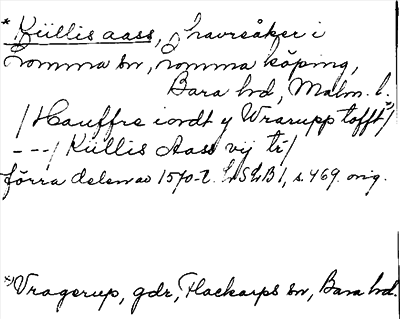 * Küllis aass, I havreåker i
Lomma sn, Lomma köping,
Bara hd, Malm. l.
/ Hauffre iordt y Wrarupp tofft x)/
---/ Küllis Aass vij tr/
förra delen av 1570-t. LSLB 1, s. 469. orig.
x) Vragerup, gdr, Flackarps sn, Bara hd.